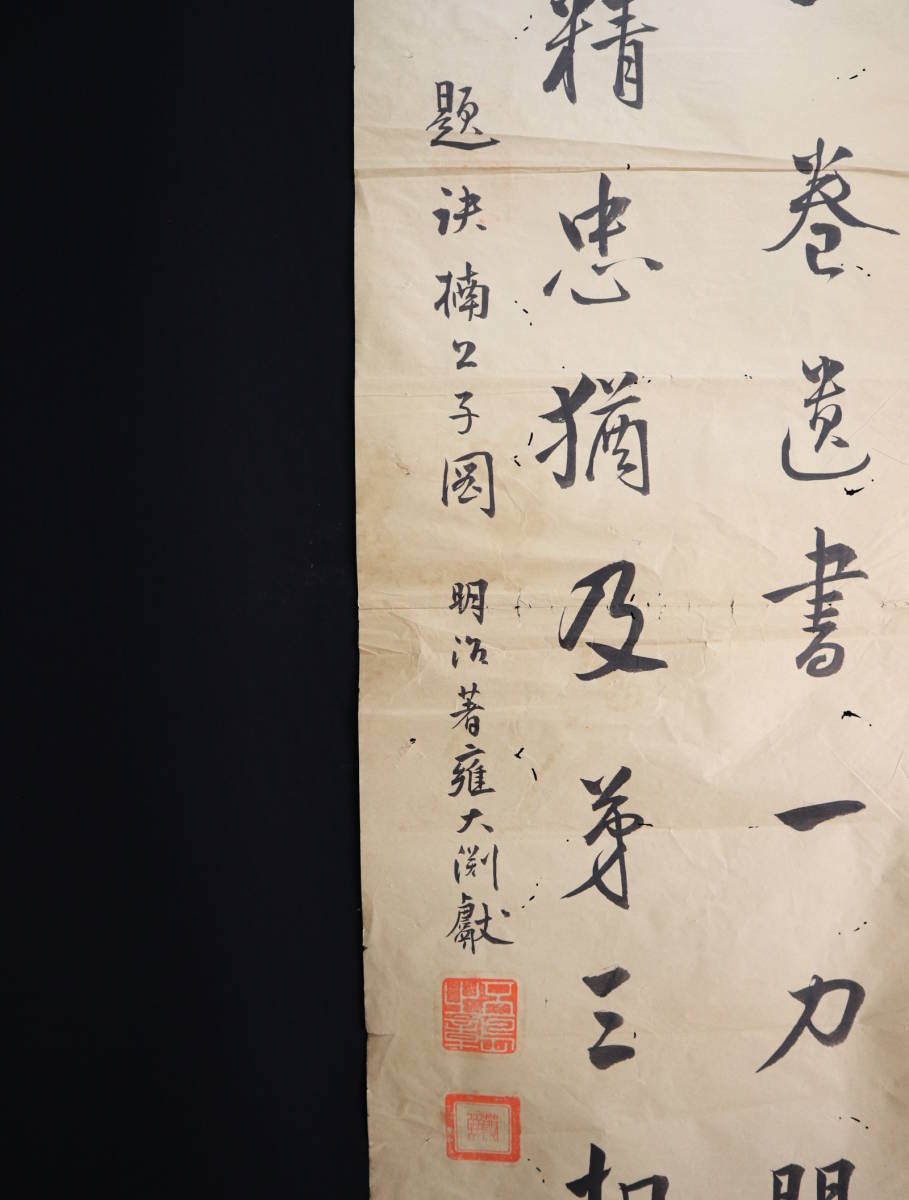 卷遺書一力
精忠猶及第三
題訣楠公子圖 明治著雍大渕獻